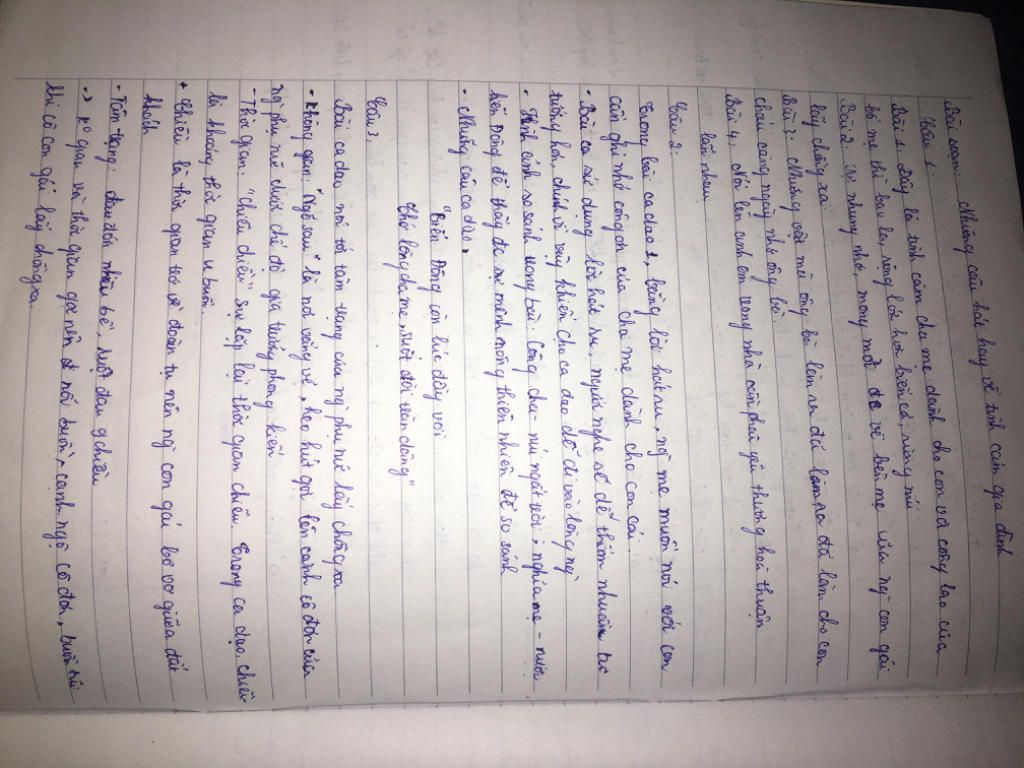 Bài soạn: Những câu hát hay về tình cảm gia đình
Câu 1:
Bài 1. Đây là tình cảm cha mẹ dành cho con và công lao của
bố mẹ thì bao la, rộng lớn hơn biển cả, rừng núi
Bài 2: nhung nhớ, mong mỏi về bên mẹ của ng con gái
lấy chồng xa
Bài 3: Những vật mà ông bà làm ra đã làm cho con
cháu càng nguôi nhớ ông bà.
Bài 4: Nói lên anh em trong nhà cần phải yêu thương hoà thuận
lẫn nhau
Câu 2:
Trong bài ca dao 1, bằng lời hát ru, ng mẹ muốn nói với con
cần ghi nhớ công ơn của cha mẹ dành cho con cái.
- Bài ca sử dụng lời hát ru, người nghe sẽ dễ thấm nhuần tư
tưởng hơn, chính vì vậy khiến cho ca dao dễ đi vào lòng ng
- Hình ảnh so sánh trong bài: Công cha - núi ngất trời; nghĩa mẹ - nước
biển Đông để thấy đc sự mênh mông thiên nhiên để so sánh
- Những câu ca dao:
"Biển Đông còn lúc đầy vơi
Chớ lòng cha mẹ suốt đời tràn dâng"
Câu 3:
Bài ca dao nói tỏ tâm trạng của ng phụ nữ lấy chồng xa
- Không gian: "Ngõ sau" là nơi vắng vẻ, heo hút gợi lên cảnh cô đơn của
ng phụ nữ dưới chế độ gia trưởng phong kiến
- Thời gian: "chiều chiều" sự lặp lại thời gian chiều. Trong ca dao chiều
là khoảng thời gian u buồn.
+ Chiều là thời gian trở về đoàn tụ nên ng con gái bơ vơ giữa đất
khách
- Tâm trạng: đau đớn nhiều bề, ruột đau 9 chiều
-> ko gian và thời gian gợi nên đc nỗi buồn, cảnh ngộ cô đơn, buồn tủi
khi cô con gái lấy chồng xa.